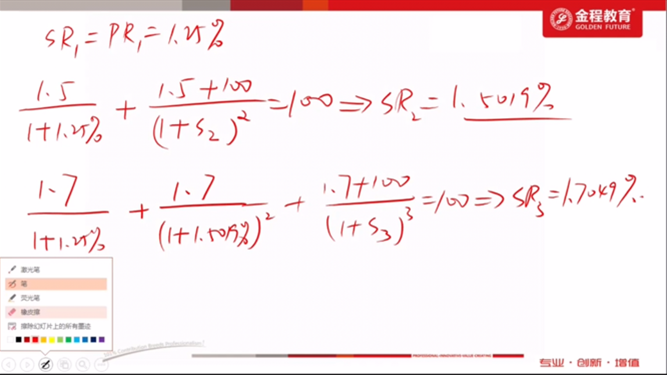 金程教育
GOLDEN FUTURE
SR₁ = PR₁ = 1.25%
1.5/(1+1.25%) + (1.5+100)/(1+S₂)² = 100 ⇒ SR₂ = 1.5019%
1.7/(1+1.25%) + 1.7/(1+1.5019%)² + (1.7+100)/(1+S₃)³ = 100 ⇒ SR₃ = 1.7049%.
激光笔
笔
荧光笔
橡皮擦
擦除幻灯片上的所有墨迹
专业·创新·增值